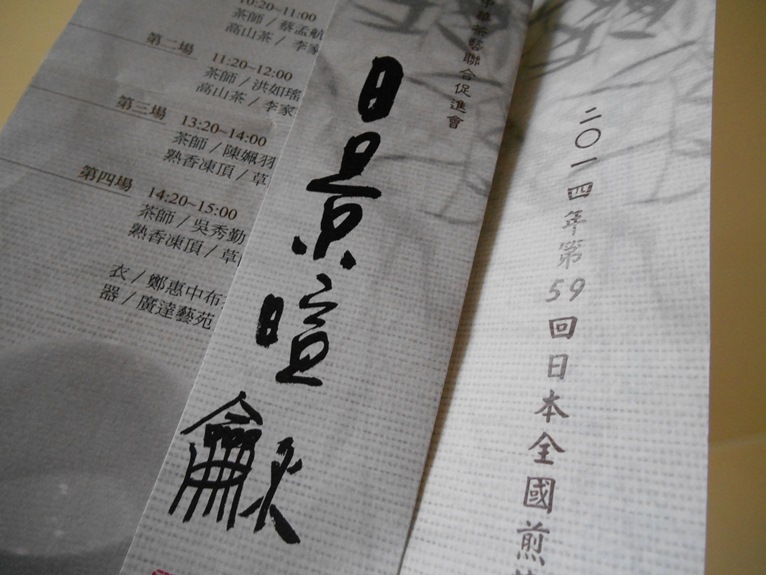 10:20~11:00
茶師／蔡孟航
高山茶／李家
第二場
11:20~12:00
茶師／洪如瑤
高山茶／李家
第三場
13:20~14:00
茶師／陳姵羽
熟香凍頂／草
第四場
14:20~15:00
茶師／吳秀勤
熟香凍頂／草
衣／鄭惠中布
器／廣達藝苑
中華茶藝聯合促進會
日日景暄
二〇一四年第59回日本全國煎